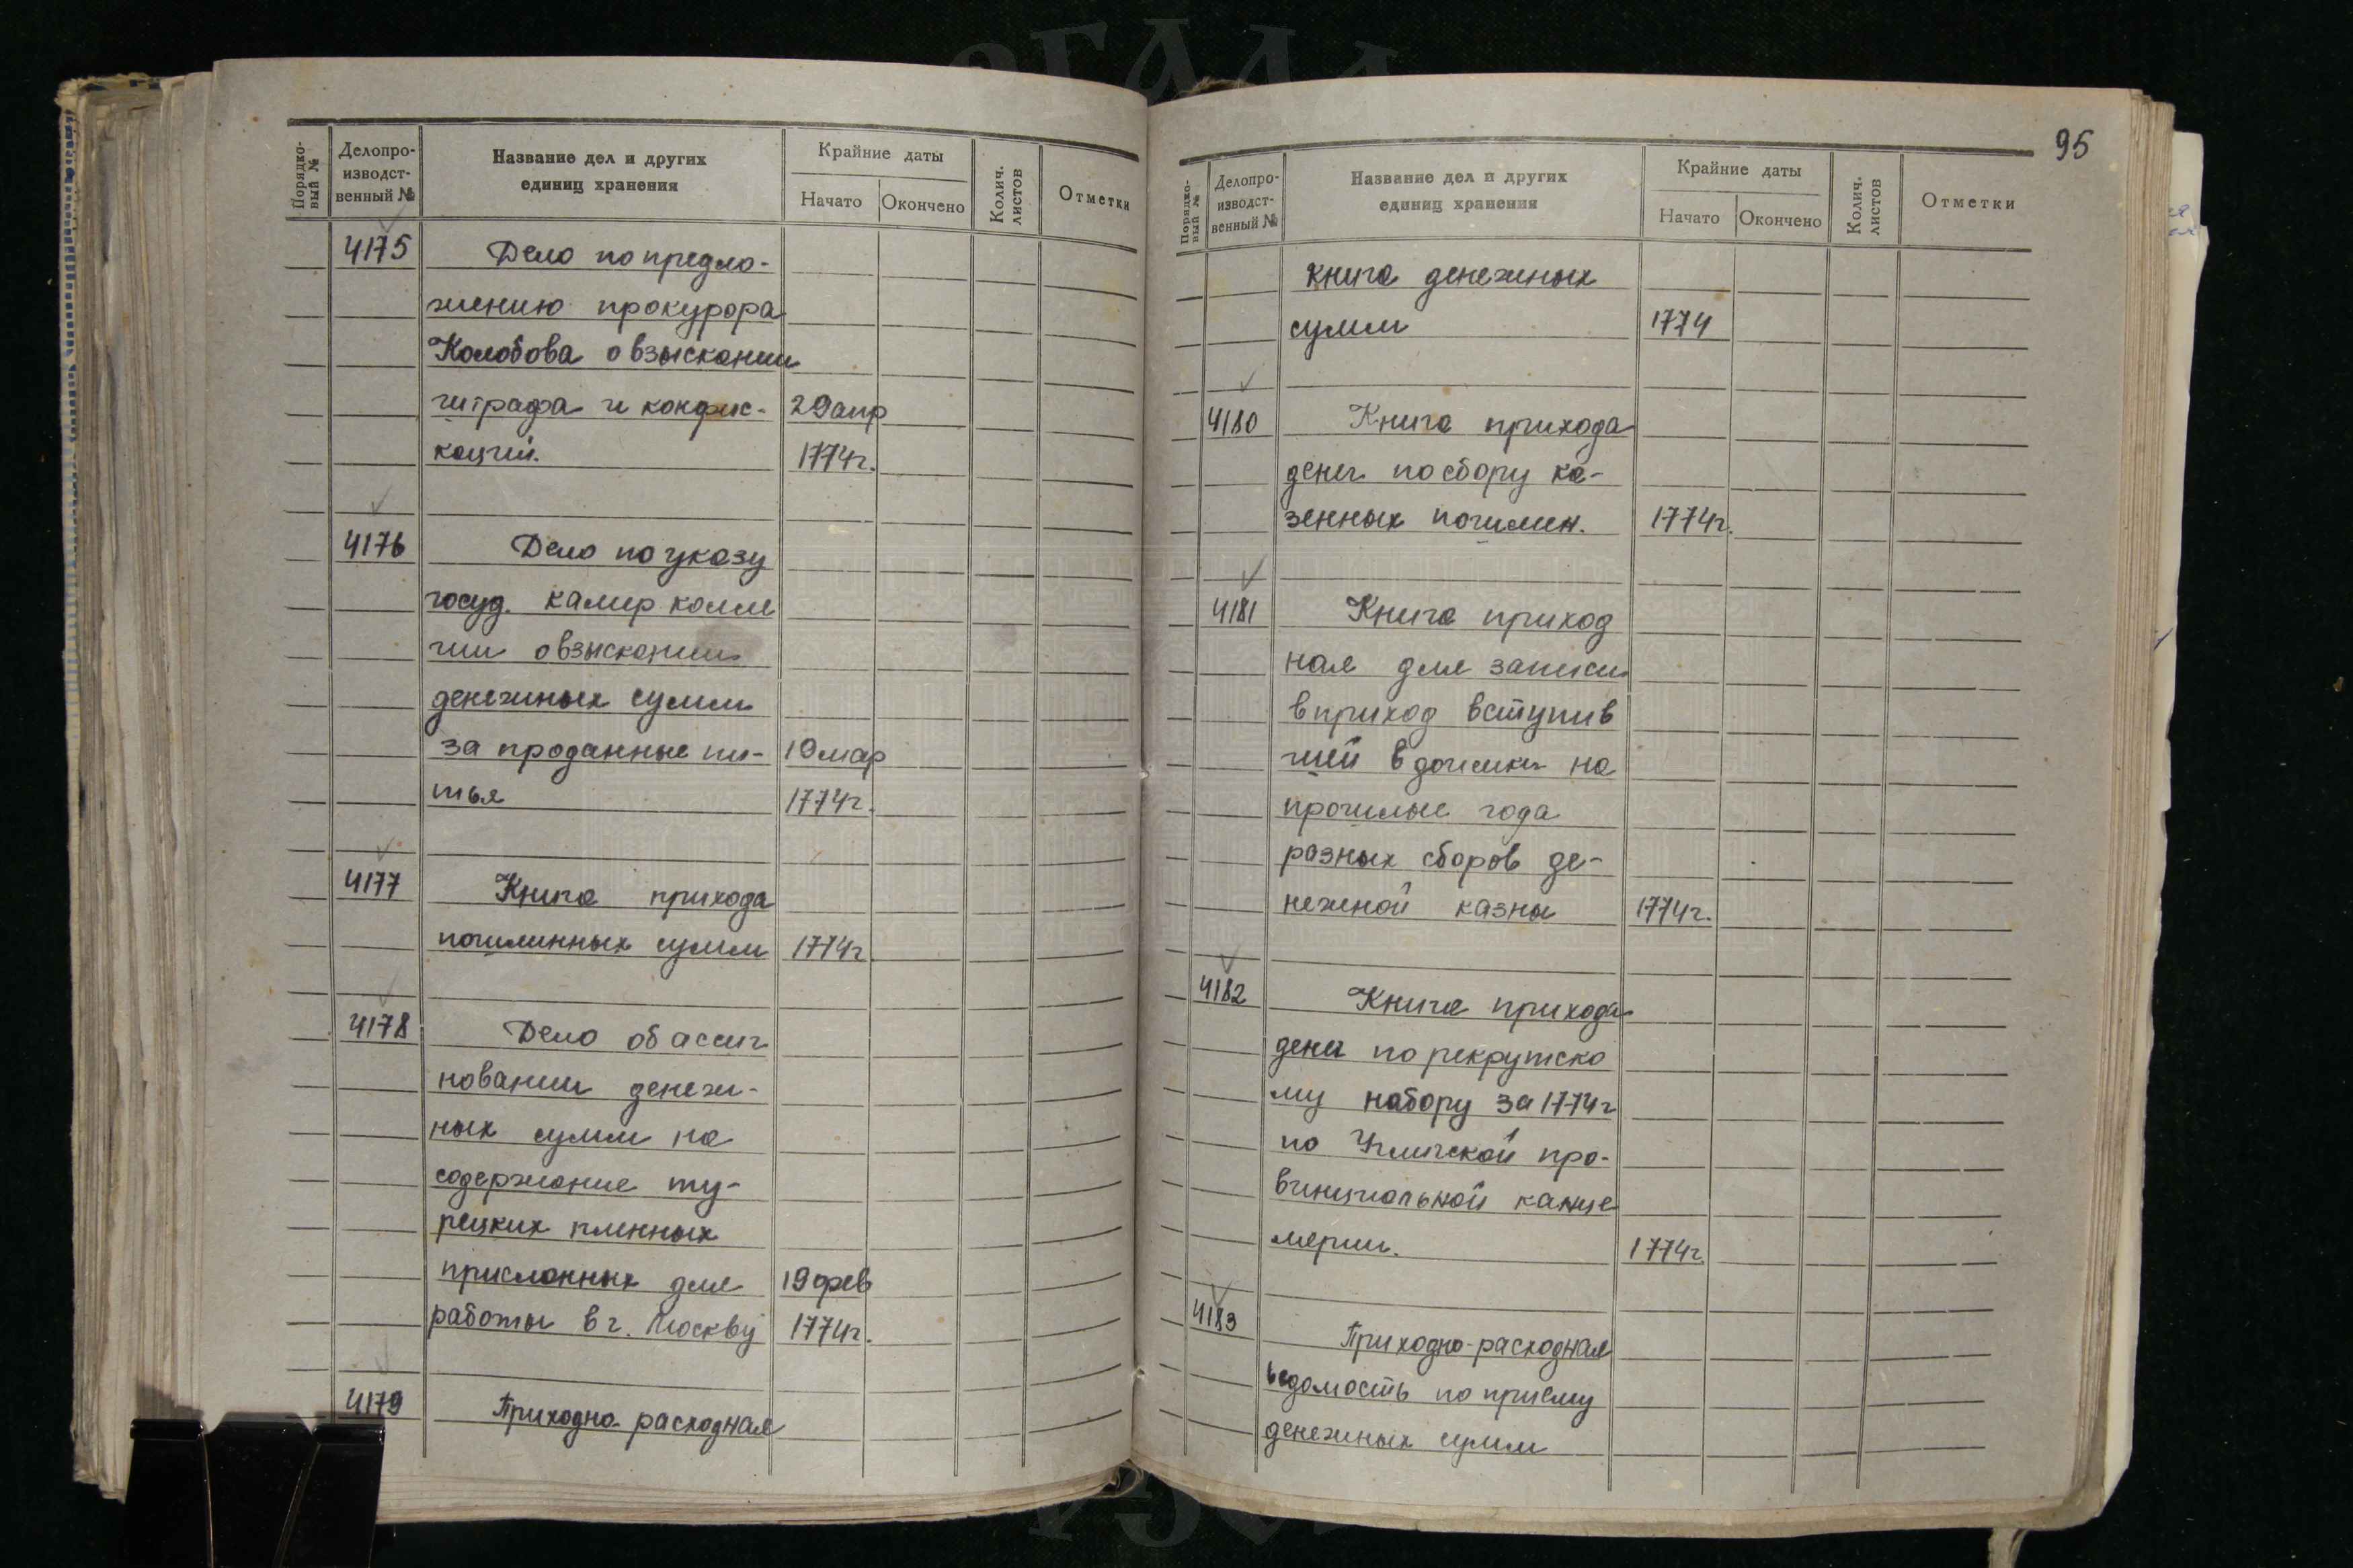 Порядко-
вый №
Делопро-
изводст-
венный №
Название дел и других
единиц хранения
Крайние даты
Начато
Окончено
Колич.
листов
Отметки
4175 Дело по предло-
жению прокурора
Колобова о взыскании
штрафа и конфис- 29 апр
каций. 1774г.
4176 Дело по указу
госуд. камер колле
гии о взыскании
денежных сумм
за проданные пи- 10 мар
тья 1774г.
4177 Книга прихода
пошлинных сумм 1774г
4178 Дело об ассиг
новании денеж-
ных сумм на
содержание ту-
рецких пленных
присланных для 19 фев
работы в г. Москву 1774г.
4179 Приходно-расходная
95
Порядко-
вый №
Делопро-
изводст-
венный №
Название дел и других
единиц хранения
Крайние даты
Начато
Окончено
Колич.
листов
Отметки
книга денежных
сумм 1774
4180 Книга прихода
денег по сбору ка-
зенных пошлин. 1774г.
4181 Книга приход
ная для записи
в приход вступив
шей в доимки на
прошлые года
разных сборов де-
нежной казны 1774г.
4182 Книга прихода
денег по рекрутско
му набору за 1774г
по Угличской про-
винциальной канце
лерии. 1774г.
4183 Приходно-расходная
ведомость по приему
денежных сумм